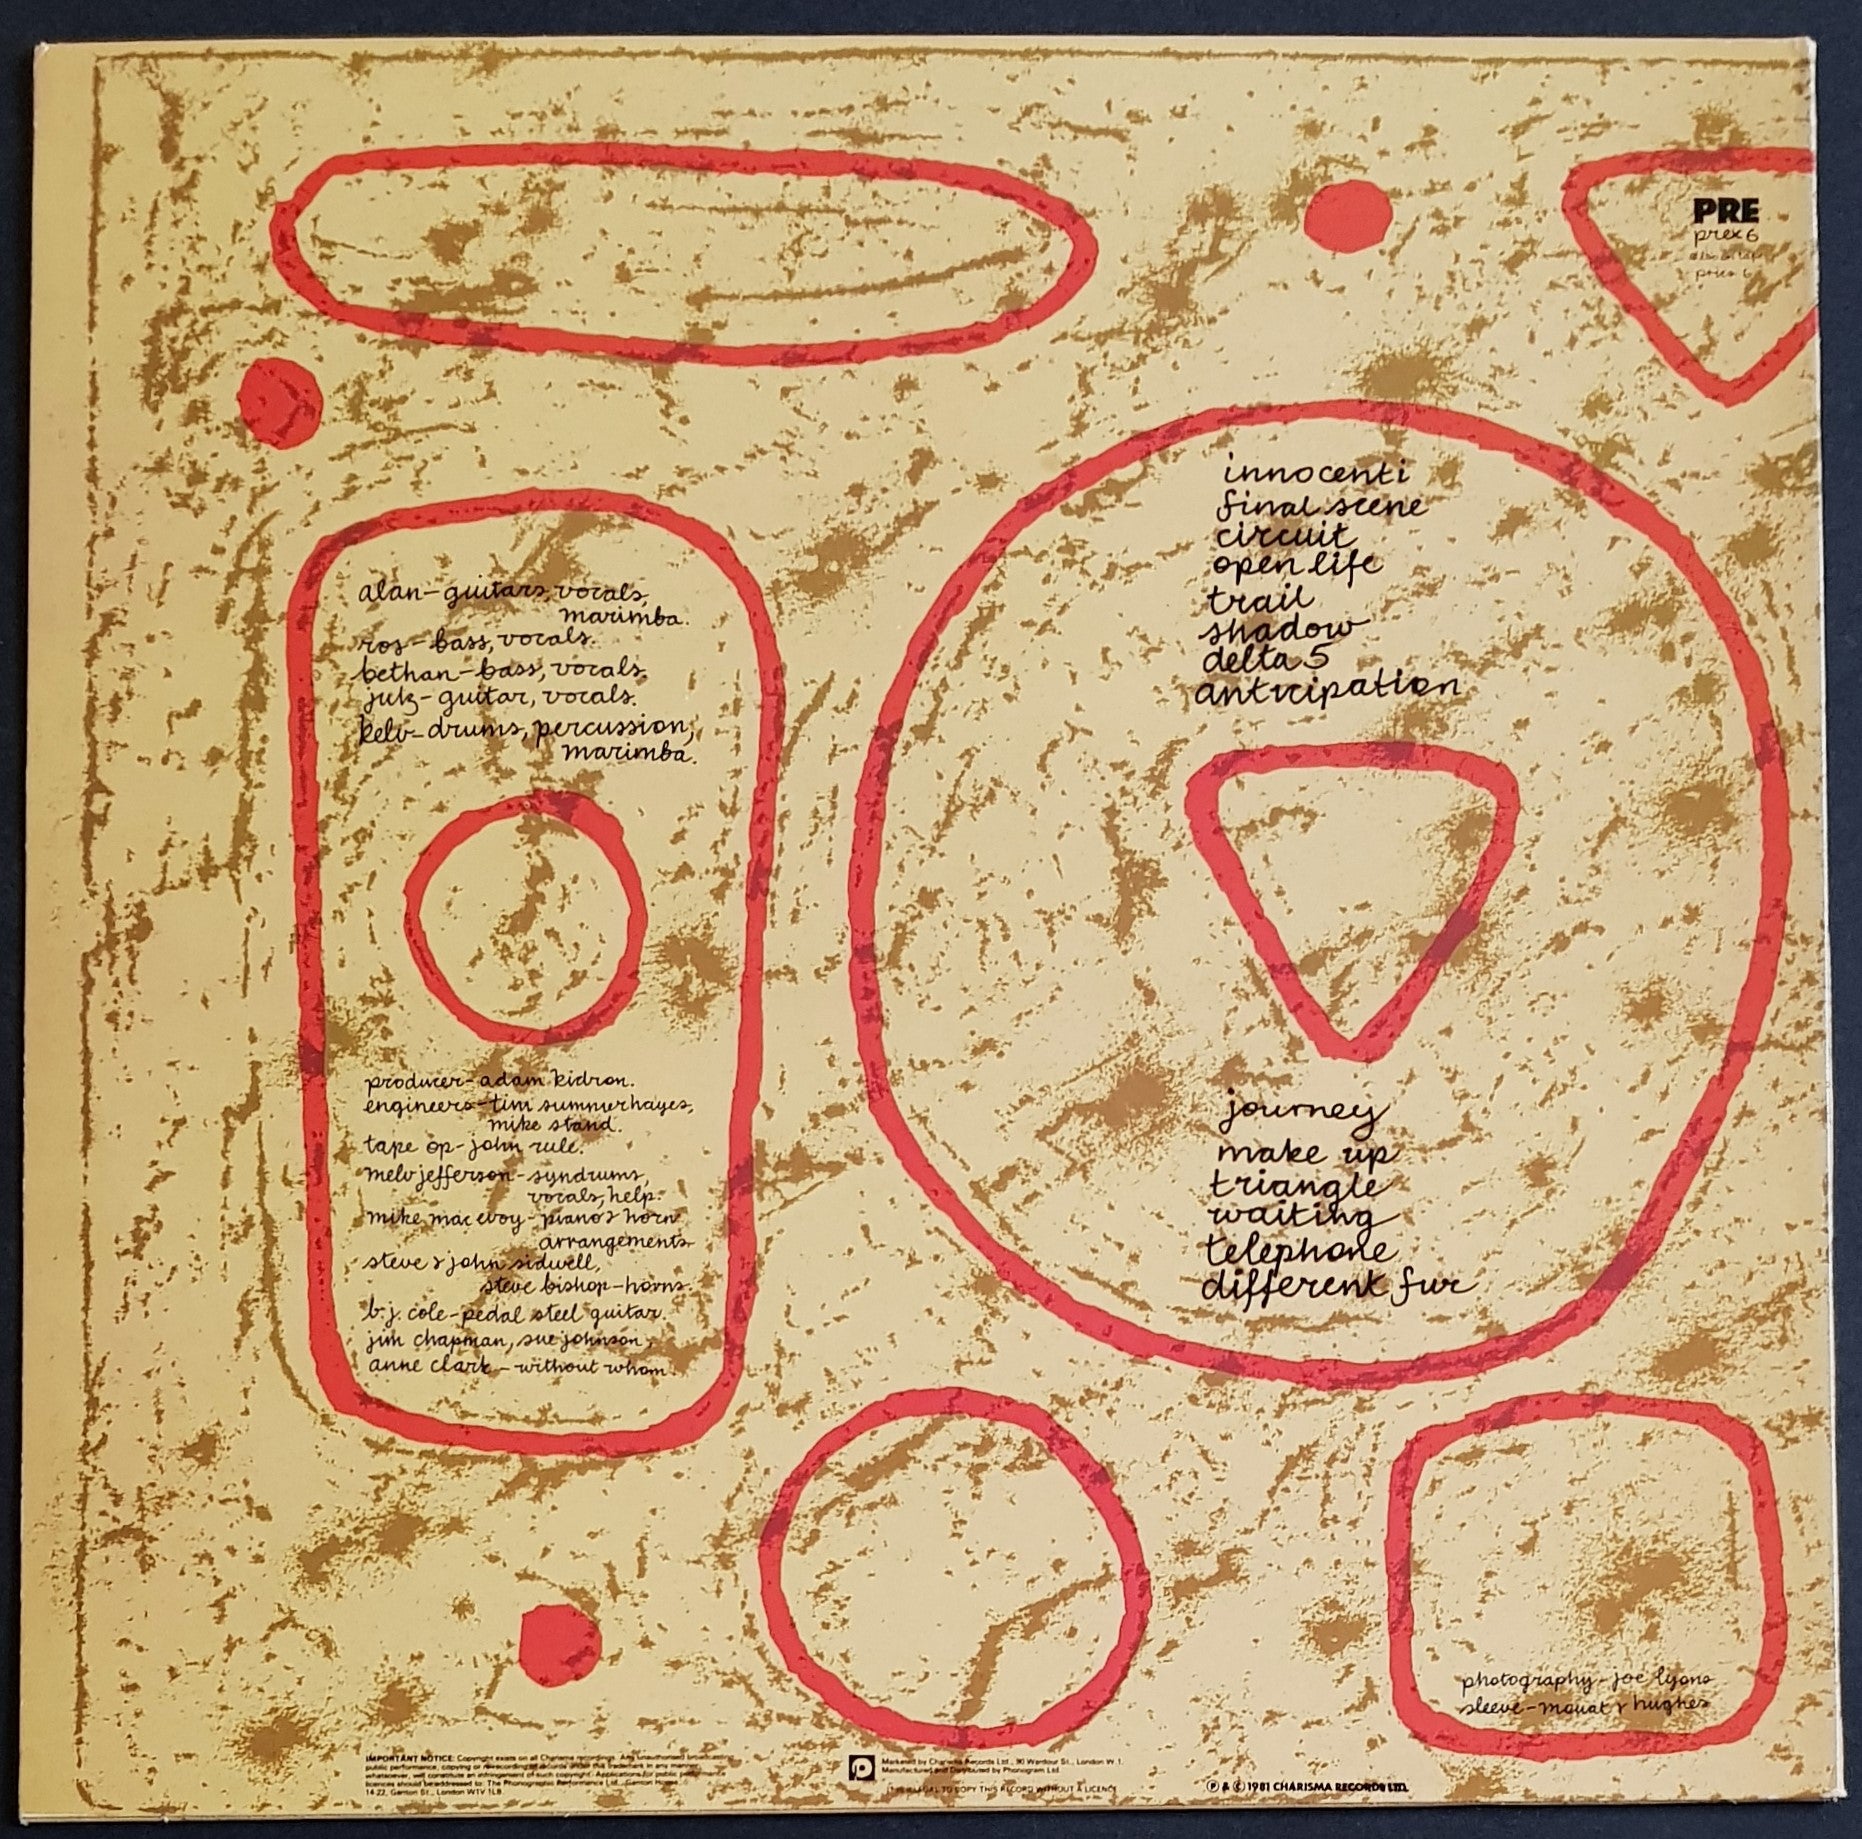 PRE
prex 6
alan – guitars, vocals,
marimba.
ros – bass, vocals.
bethan – bass, vocals.
julz – guitar, vocals.
kelv – drums, percussion,
marimba.
producer – adam kidron.
engineers – tim summerhayes,
mike stand.
tape op – john rule.
melv jefferson – syndrums,
vocals, help.
mike mac evoy – piano & horn
arrangements.
steve & john sidwell,
steve bishop – horns.
b.j. cole – pedal steel guitar.
jim chapman, sue johnson,
anne clark – without whom.
innocenti
final scene
circuit
open life
trail
shadow
delta 5
anticipation
journey
make up
triangle
waiting
telephone
different fur
photography – joe lyons
sleeve – mouat & hughes
IMPORTANT NOTICE: Copyright exists on all Charisma recordings. Any unauthorised broadcasting,
public performance, copying or re-recording of records under this trademark in any manner
whatsoever, will constitute an infringement of such copyright. Applications for public performance
licences should be addressed to: The Phonographic Performance Ltd., Ganton House,
14-22, Ganton St., London W1V 1LB.
Marketed by Charisma Records Ltd., 90 Wardour St., London W.1.
Manufactured and Distributed by Phonogram Ltd.
IT IS ILLEGAL TO COPY THIS RECORD WITHOUT A LICENCE
℗ & © 1981 CHARISMA RECORDS LTD.